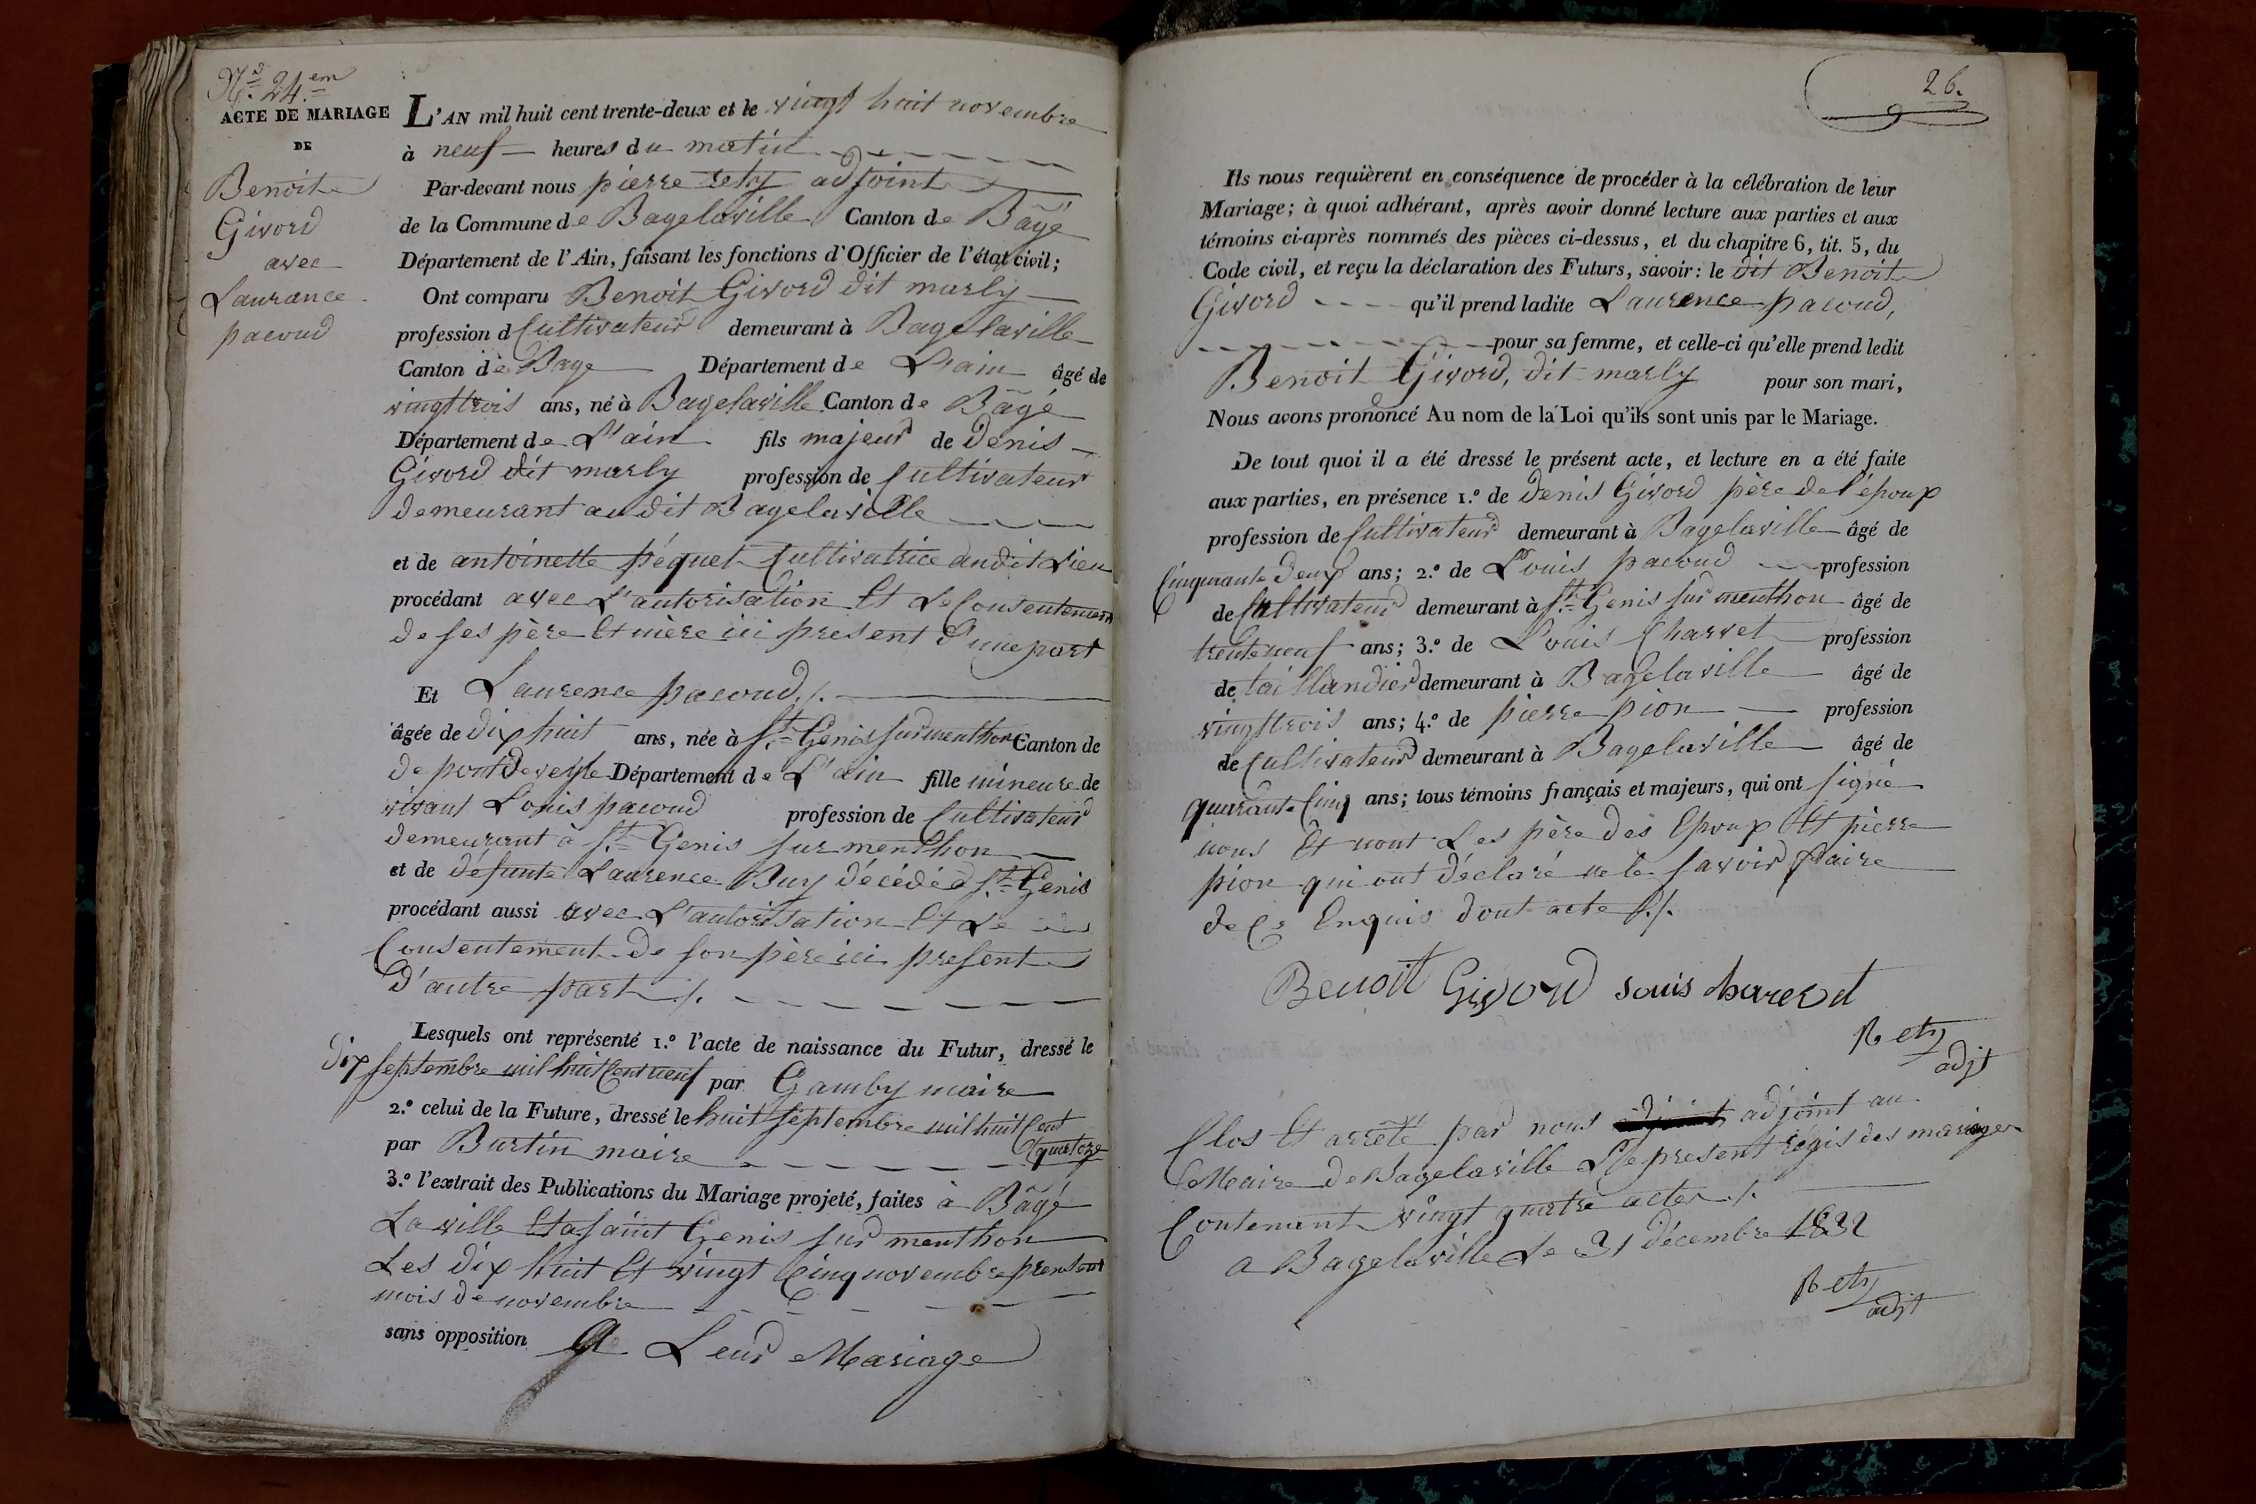 N.º 24.em
ACTE DE MARIAGE
DE
Benoit
Givord
avec
Laurance
pacoud
L'AN mil huit cent trente-deux et le vingt huit novembre
à neuf heures du matin
Par-devant nous pierre rety adjoint
de la Commune de Bagelaville Canton de Bâgé
Département de l'Ain, faisant les fonctions d'Officier de l'état civil;
Ont comparu Benoit Givord dit marly
profession d Cultivateur demeurant à Bagelaville
Canton de Bage Département de L'ain âgé de
vingttrois ans, né à Bagelaville Canton de Bâgé
Département de L'ain fils majeur de Denis
Givord dit marly profession de Cultivateur
demeurant audit Bagelaville
et de antoinette péquet Cultivatrice audit Lieu
procédant avec L'autorisation Et Le Consentement
de ses père Et mère ici présent d'une part
Et Laurence pacoud ./.
âgée de dix huit ans, née à St. Genis sur menthon Canton de
de pontdeveyle Département de L'ain fille mineure de
vivant Louis pacoud profession de Cultivateur
demeurant à St. Genis sur menthon
et de défunte Laurence Buy décédé à St. Genis
procédant aussi avec L'autorisation Et Le
Consentement de son père ici présent
D'autre part ./.
Lesquels ont représenté 1.º l'acte de naissance du Futur, dressé le
dix septembre mil huit Cent neuf par Gamby maire
2.º celui de la Future, dressé le huit septembre mil huit Cent
quatorze
par Burtin maire
3.º l'extrait des Publications du Mariage projeté, faites à Bâgé
La ville Et a saint Genis sur menthon
Les dix huit Et vingt Cinq novembre présent
mois de novembre
sans opposition a Leur Mariage
26.
Ils nous requièrent en conséquence de procéder à la célébration de leur
Mariage; à quoi adhérant, après avoir donné lecture aux parties et aux
témoins ci-après nommés des pièces ci-dessus, et du chapitre 6, tit. 5, du
Code civil, et reçu la déclaration des Futurs, savoir: le dit Benoit
Givord qu'il prend ladite Laurence pacoud,
pour sa femme, et celle-ci qu'elle prend ledit
Benoit Givord, dit marly pour son mari,
Nous avons prononcé Au nom de la Loi qu'ils sont unis par le Mariage.
De tout quoi il a été dressé le présent acte, et lecture en a été faite
aux parties, en présence 1.º de Denis Givord père de l'époux
profession de Cultivateur demeurant à Bagelaville âgé de
Cinquante deux ans; 2.º de Louis pacoud profession
de Cultivateur demeurant à St. Genis sur menthon âgé de
trente neuf ans; 3.º de Louis Charvet profession
de taillandier demeurant à Bagelaville âgé de
vingttrois ans; 4.º de pierre pion profession
de Cultivateur demeurant à Bagelaville âgé de
quarante Cinq ans; tous témoins français et majeurs, qui ont signé
nous Et nont Les père des Epoux Et pierre
pion qui ont déclaré ne le savoir faire
de Ce Enquis dont acte ./.
Benoit Givord Louis
Rety
adjt
Clos Et arrêté par nous adjoint au
Maire de Bagelaville Le present régis des mariages
Contenant vingt quatre actes ./.
a Bagelaville Le 31 décembre 1832
Rety
adjt